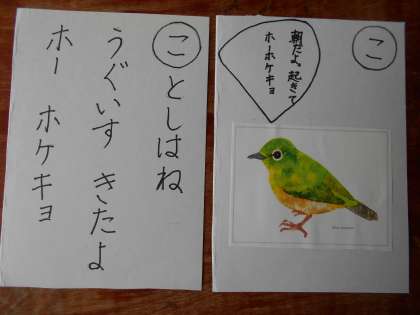 こ
としはね
うぐいす きたよ
ホー ホケキョ
こ
朝だよ。起きて
ホーホケキョ